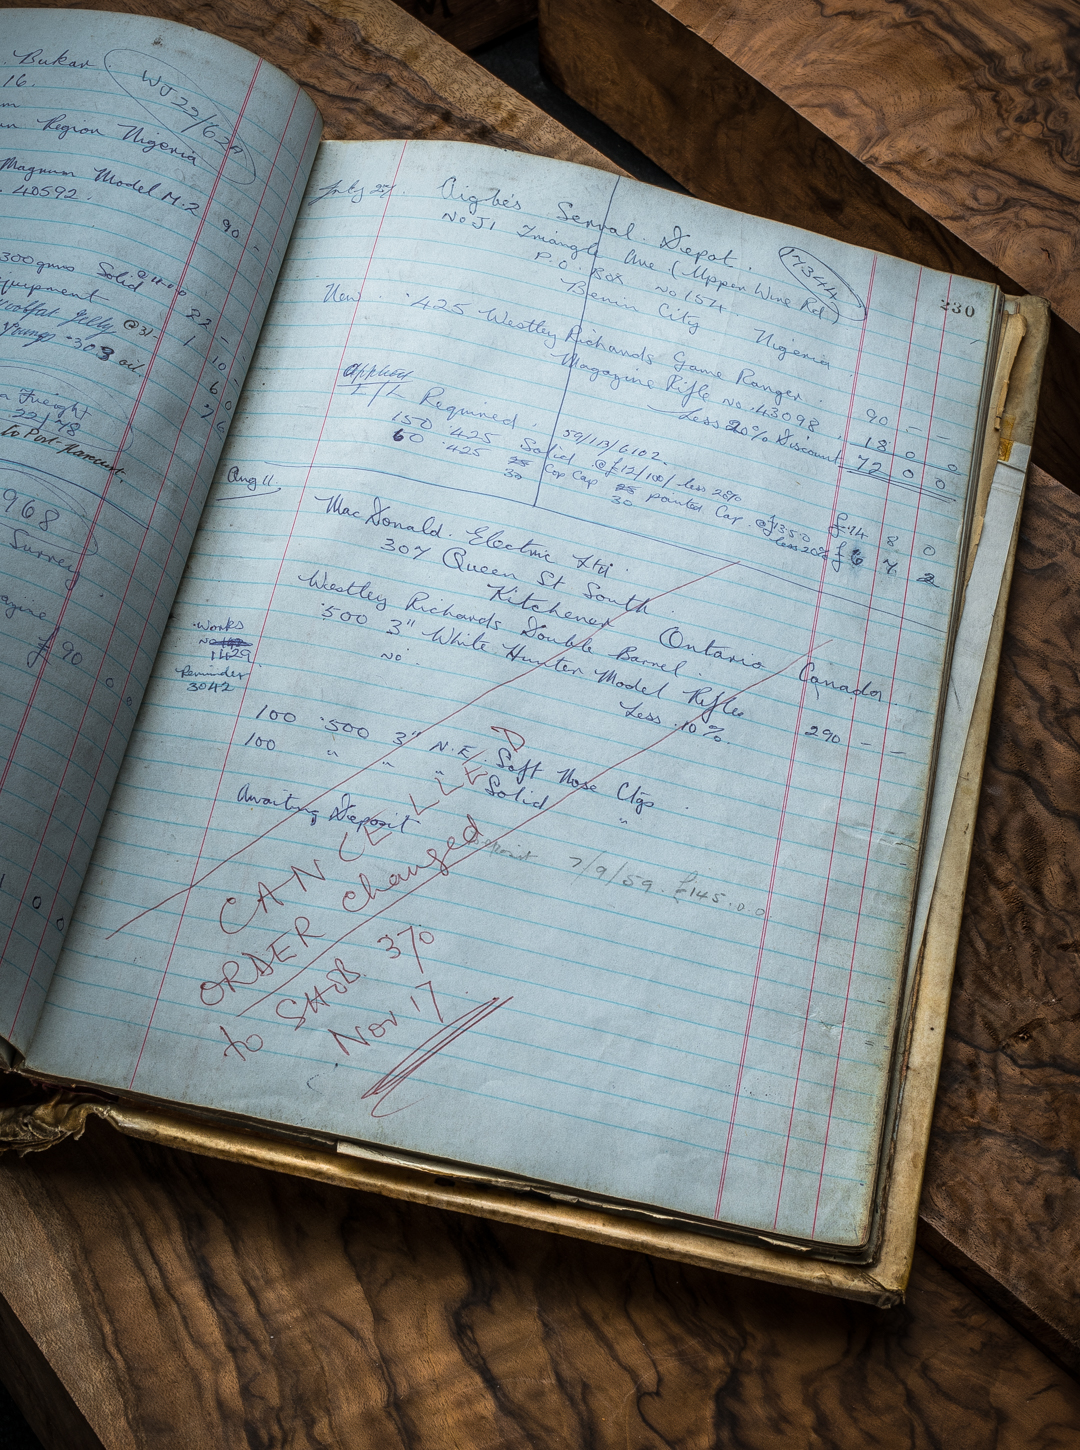 Bukar
16.
WJ 22/620
Region Nigeria
Magnum Model M.2 90 -
40592.
300 grns Solid 22 -
equipment 1 10 -
Jelly @ 3/ 6 0
.303 oil 7 6
Freight
22/1/48
to Port Harcourt.
968
Surrey
£90 0 0
1 0 0
230
July 25/. Aigbe's Serval Depot.
No J1 Triangle Ave (Upper Wire Rd)
17344
P.O. Box No 154.
Benin City Nigeria
New .425 Westley Richards Game Ranger.
Magazine Rifle No. 43098. 90 - -
Less 20% Discount 18 0 0
72 0 0
applied
E/L Required. 59/113/6102.
150 .425 Solid @ £12/100/ less 20% £14 8 0
60 .425 25 Cop Cap 25 pointed Cap. @ £13.5.0 £6 7 2
30 30 less 20%
Aug 11.
MacDonald. Electric Ltd.
307 Queen St South.
Kitchener Ontario Canada.
Westley Richards Double Barrel.
.500 3" White Hunter Model Rifle 290 - -
No. Less 10%.
Works
No
1429
Reminder
3042
100 .500 3" N.E. Soft Nose Ctgs.
100 " " " Solid "
Awaiting Deposit
Deposit 7/9/59. £145.0.0
CANCELLED
ORDER changed
to SHOB 370
Nov 17